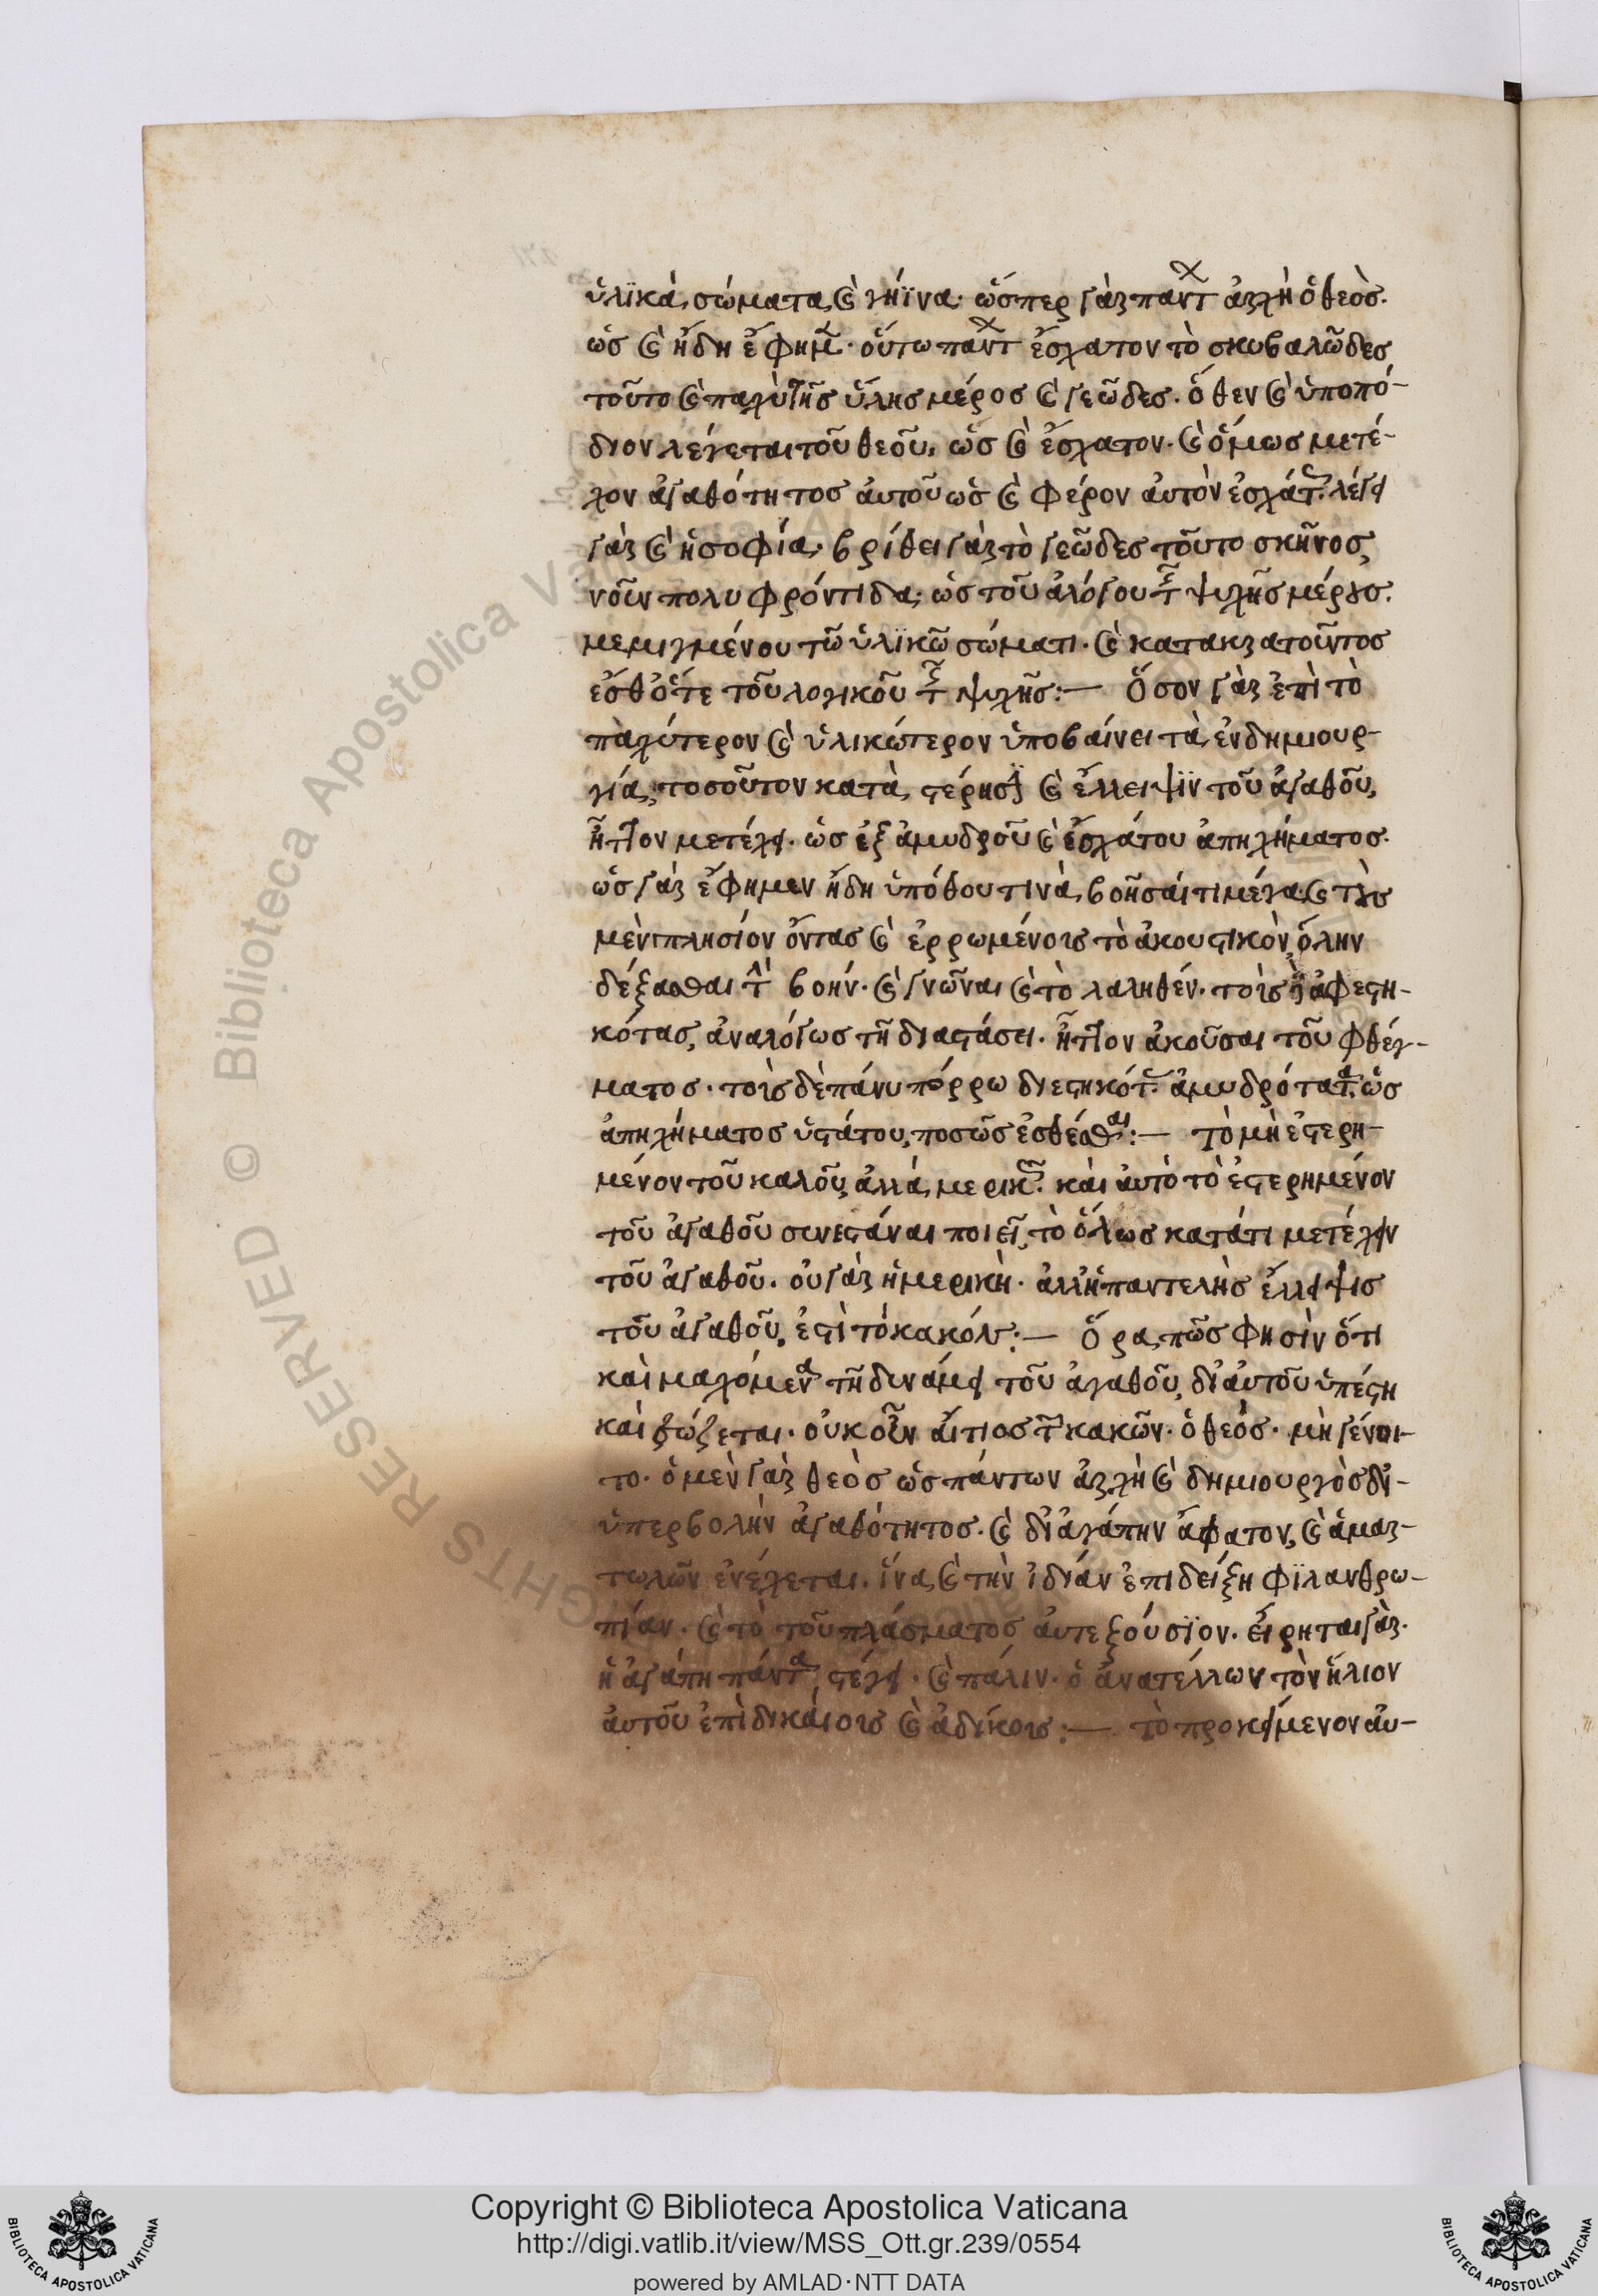 ὑλϊκὰ σώματα, καὶ γήϊνα· ὥσπερ γὰρ παντ ἀρχὴ ὁ θεὸσ.
ὡσ καὶ ἤδη ἔφημ· οὕτω παντ ἔσχατον τὸ σκυβαλῶδεσ
τοῦτο καὶ παχὺ τῆσ ὕλησ μέροσ καὶ γεῶδεσ. ὅθεν καὶ ὑποπό-
διον λέγεται τοῦ θεοῦ, ὡσ καὶ ἔσχατον. καὶ ὅμωσ μετέ-
χον ἀγαθότητοσ ἀυτοῦ ὡσ καὶ φέρον ἀυτὸν ἐσχάτ. λέγει
γὰρ καὶ ἡ σοφία· βρίθει γὰρ τὸ γεῶδεσ τοῦτο σκῆνοσ,
νοῦν πολυφρόντιδα· ὡσ τοῦ ἀλόγου τ ψυχῆσ μέρουσ.
μεμιγμένου τῶ ὑλϊκῶ σώματι. καὶ κατακρατοῦντοσ
ἐσθότε τοῦ λογικοῦ τ ψυχῆσ:— Ὅσον γὰρ ἐπὶ τὸ
παχύτερον καὶ ὑλικώτερον ὑποβαίνει τὰ ἐν δημιουρ-
γία, τοσοῦτον κατὰ στέρησιν καὶ ἔλλειψϊν τοῦ ἀγαθοῦ,
ἧττον μετέχει. ὡσ ἐξ ἀμυδροῦ καὶ ἐσχάτου ἀπηχήματοσ.
ὡσ γὰρ ἔφημεν ἤδη ὑπόθου τινὰ βοῆσαί τι μέγα, καὶ τοὺσ
μὲν πλησίον ὄντασ καὶ ἐρρωμένοισ τὸ ἀκουστικὸν, ὅλην
δέξασθαι τ βοήν. καὶ γνῶναι καὶ τὸ λαληθέν. τοῖσ δ ἀφεστη-
κότασ, ἀναλόγωσ τῆ διαστάσει. ἧττον ἀκοῦσαι τοῦ φθέγ-
ματοσ. τοῖσ δὲ πάνυ πόρρω διεστηκότ. ἀμυδρότατ, ὡσ
ἀπηχήματοσ ὑστάτου, ποσῶσ ἐσθέσθαι:— τὸ μὴ ἐστερη-
μένον τοῦ καλοῦ, ἀλλὰ μερικ. καὶ ἀυτὸ τὸ ἐστερημένον
τοῦ ἀγαθοῦ συνεστάναι ποιεῖ, τὸ ὅλωσ κατάτι μετέχειν
τοῦ ἀγαθοῦ. οὐ γὰρ ἡ μερικὴ. ἀλλ ἡ παντελὴσ ἔλλειψισ
τοῦ ἀγαθοῦ, ἐστὶ τὸ κακόν:— Ὅρα πῶσ φησὶν ὅτι
καὶ μαχόμενα τῆ δυνάμει τοῦ ἀγαθοῦ, δι ἀυτοῦ ὑπέστη
καὶ σώζεται. οὐκοῦν αἴτιοσ τ κακῶν. ὁ θεόσ. μὴ γένοι-
το. ὁ μὲν γὰρ θεὸσ ὡσ πάντων ἀρχὴ καὶ δημιουργὸσ δι-
ὑπερβολὴν ἀγαθότητοσ. καὶ δι ἀγάπην ἄφατον, καὶ ἁμαρ-
τωλῶν ἀνέχεται. ἵνα καὶ τὴν ἰδίαν ἐπιδείξη φϊλανθρω-
πίαν. καὶ τὸ τοῦ πλάσματοσ ἀυτεξούσϊον. εἴρηται γὰρ.
ἡ ἀγάπη πάντα στέγει. καὶ πάλιν. ὁ ἀνατέλλων τὸν ἥλιον
ἀυτοῦ ἐπὶ δικαίοισ καὶ ἀδίκοισ:— τὸ προκείμενον ἀυ-
Copyright © Biblioteca Apostolica Vaticana
http://digi.vatlib.it/view/MSS_Ott.gr.239/0554
powered by AMLAD·NTT DATA